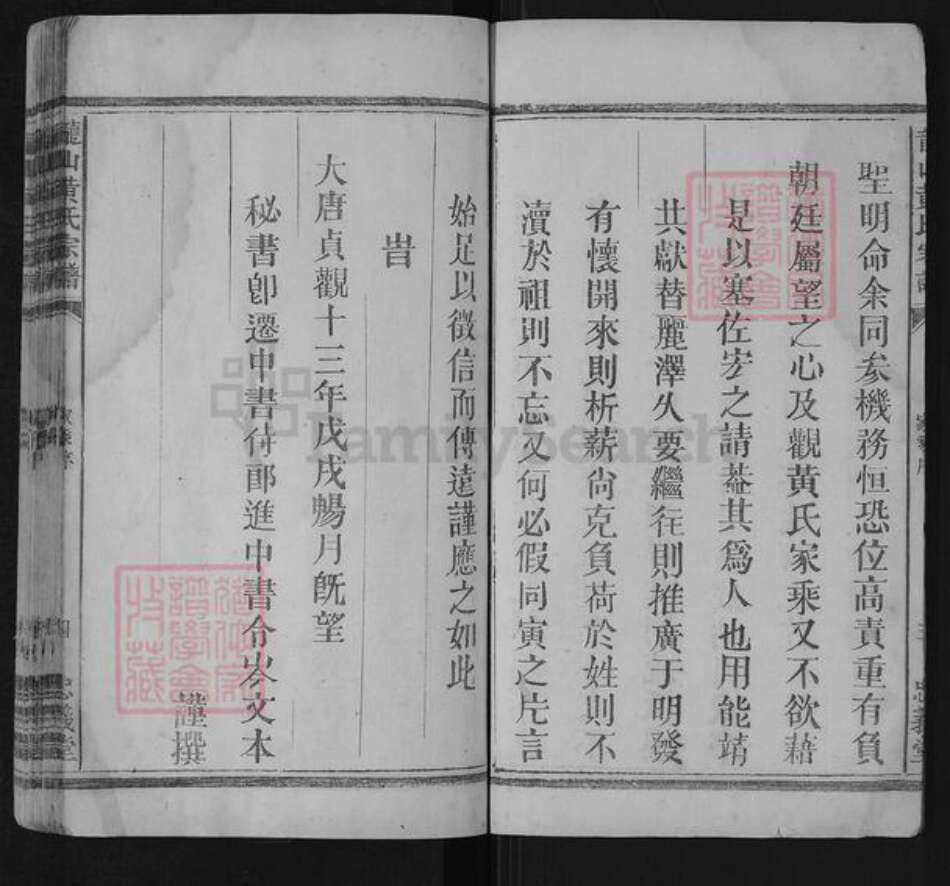 聖明命余同參機務恒恐位高責重有負
朝廷屬望之心及觀黃氏家乘又不欲藉
是以塞佐安之請蓋其爲人也用能靖
共獻替麗澤久要繼往則推廣于明發
有懷開來則析薪尙克負荷於姓則不
瀆於祖則不忘又何必假同寅之片言
始足以徵信而傳遠謹應之如此
旹
大唐貞觀十三年戊戌暢月旣望
秘書卽遷中書侍郞進中書令岑文本
謹撰
龍山黃氏宗譜
四
忠義堂
FamilySearch